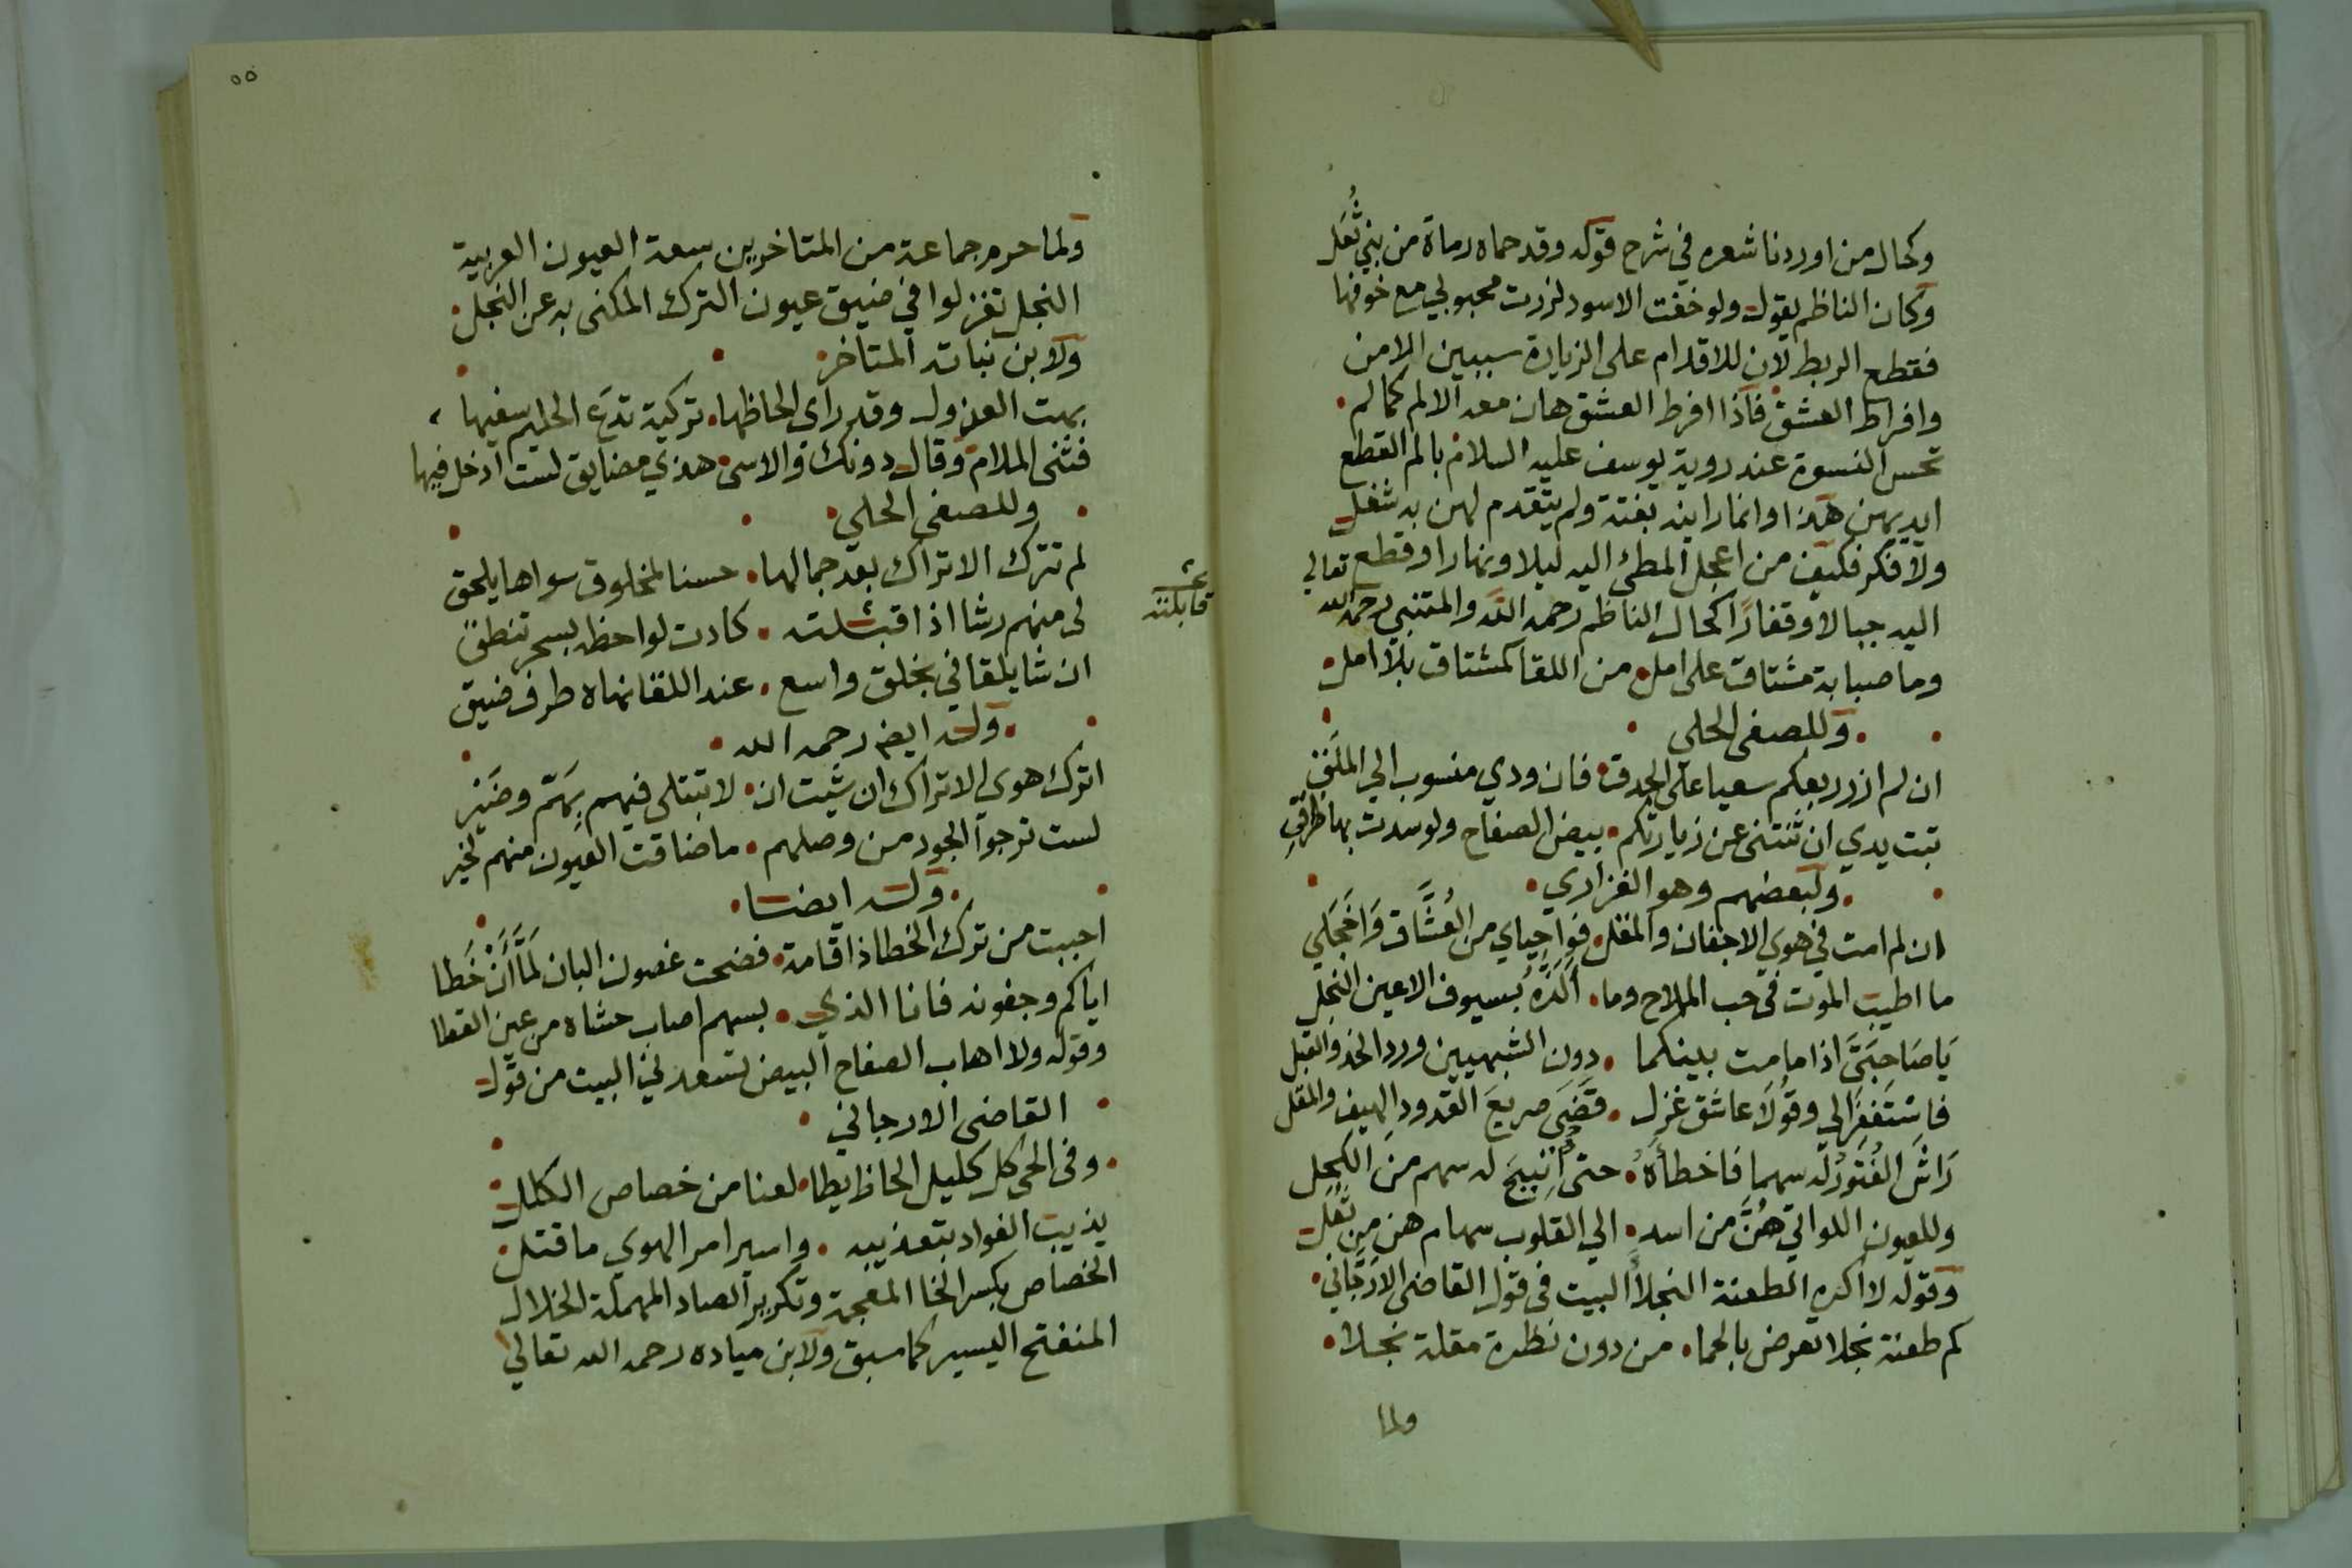 وكحال من اوردنا شعره في شرح قوله وقد حماه رماة من بني ثُعَل
وكان الناظم يقول ولو خفت الاسود لزرت محبوبي مع خوفها
فقطع الربط لان للاقدام على الزيارة سببين الامن
وافراط العشق فاذا افرط العشق هان معه الالم كما لم
تحس النسوة عند روية يوسف عليه السلام بالم القطع
ايديهن هذا وانما راينه بغتة ولم يتقدم لهن به شغل
ولا فكر فكيف من اعجل المطي اليه ليلا ونهارا وقطع تعالي
اليه جبالا وقفارًا كحال الناظم رحمه الله والمتنبي رحمه الله
وما صبابة مشتاق على امل من اللقا كمشتاق بلا امل
وللصفى الحلي
ان لم ازر ربعكم سعيا على الحدق فان ودي منسوب الي الملَق
تبت يدي ان ثنتنى عن زيارتكم بيض الصفاح ولو سدت بها طرقي
ولبعضهم وهو الفزاري
ان لم امت في هوي الاجفان والمقل فواحياي من العُشَّاق وَاخَجَلي
ما اطيب الموت في حب الملاح وما الَذّه بسيوف الاعين النجل
يَا صَاحبَيَّ اذا ما مت بينكما دون الشبهيين ورد الخد والقبل
فاستَغفرَا لي وقُولَا عاشق غزل قَضَى صريعَ القدود الهيف والمقل
رَاشَ الفُتورُ له سهما فاخطأهُ حتى اتيحَ له سهم منَ الكَحِل
وللعيون اللواتي هُنَّ من اسد الي القلوب سهام هن من ثُعَل
وقوله لا اكره الطعنة النجلا البيت في قول القاضى الارَّجاني
كم طعنة نجلا تعرض بالحما من دون نظرة مقلة نجلا
ولما
٥٥
ولما حرم جماعة من المتاخرين سعة العيون العربية
النجل تغزلوا في ضيق عيون الترك المكنى به عن النجل
ولابن نباته المتاخر
بهت العذول وقد راى الحاظها تركية تدع الحليم سفيها
فثنى الملام وقال دونك والاسى هذي مضايق لست ادخل فيها
وللصفى الحلي
لم تترك الاتراك بعد جمالها حسنا لمخلوق سواها يلحق
لى منهم رشا اذا اقبلته كادت لواحظه بسحر تنطق
قابلته
ان شا يلقاني بخلق واسع عند اللقا نهاه طرف ضيق
وله ايضا رحمه الله
اترك هوي الاتراك ان شيت ان لا تبتلى فيهم بِهَمّ وضَيْر
لست ترجوا الجود من وصلهم ما ضاقت العيون منهم لخير
وله ايضا
احببت من ترك الخطا ذا قامة فضحت غصون البان لمَّا أنْ خَطا
اياكم وجفونه فانا الذي بسهم اصاب حشاه من عين القطا
وقوله ولا اهاب الصفاح البيض تسعدني البيت من قول
القاضى الارجاني
وفى الحي كل كليل الحاظ يطالعنا من خصاص الكلل
يذيب الفواد بتعذيبه واسير امر الهوي ما قتل
الخصاص بكسر الخا المعجمة وتكرير الصاد المهملة الخلال
المنفتح اليسير كما سبق ولابن مياده رحمه الله تعالي